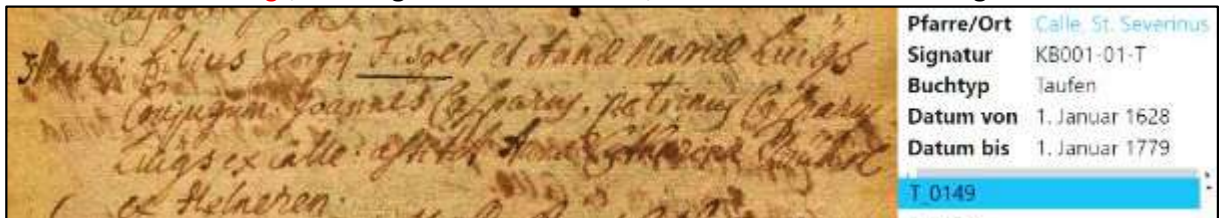 3 Martij filius Georgij Fisger et Annae Mariae Luigs
Conjugum. Joannes Casparus, patrinus Casparus
Luigs ex Calle: Anna Catharina
ex Helneren.
Pfarre/Ort Calle, St. Severinus
Signatur KB001-01-T
Buchtyp Taufen
Datum von 1. Januar 1628
Datum bis 1. Januar 1779
T_0149